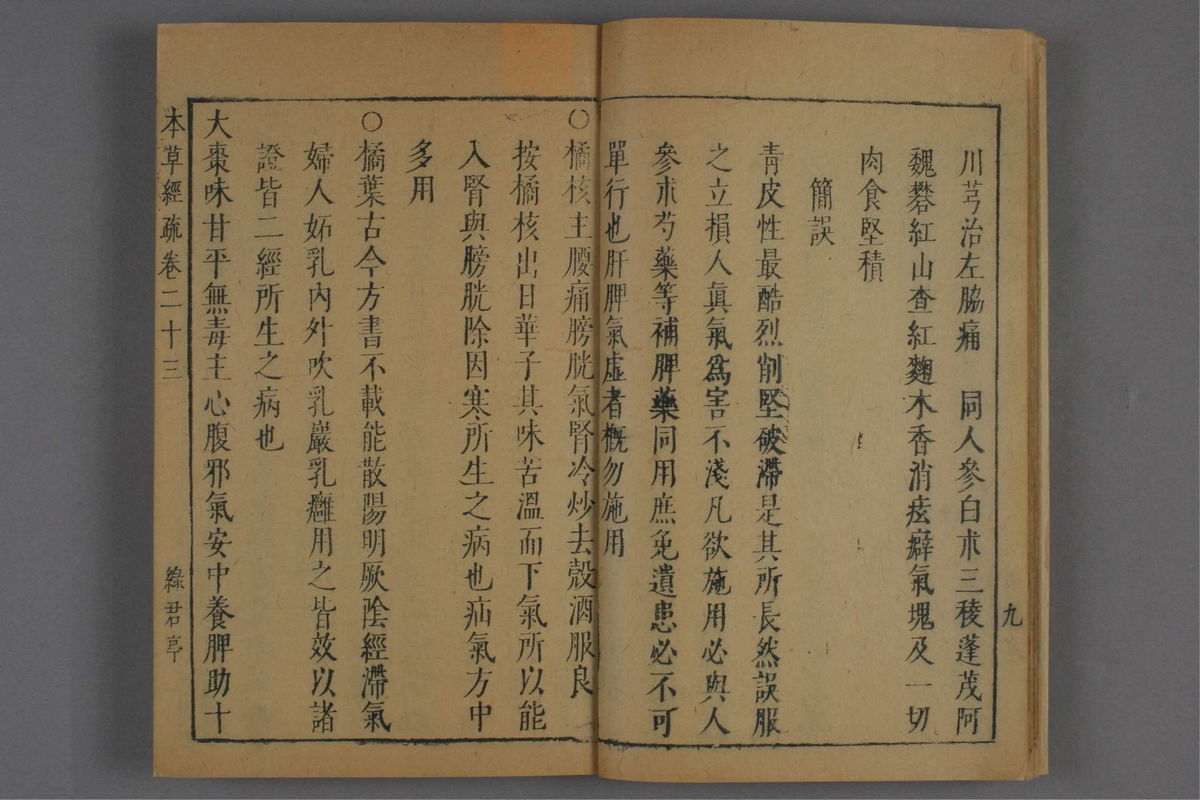 九
川芎治左脇痛　同人參白朮三稜蓬茂阿
魏礬紅山查紅麴木香消痃癖氣塊及一切
肉食堅積
簡誤
靑皮性最酷烈削堅破滯是其所長然誤服
之立損人眞氣爲害不淺凡欲施用必與人
參朮芍藥等補脾藥同用庶免遺患必不可
單行也肝脾氣虛者槪勿施用
○橘核主腰痛膀胱氣腎冷炒去殼酒服良
按橘核出日華子其味苦溫而下氣所以能
入腎與膀胱除因寒所生之病也疝氣方中
多用
○橘葉古今方書不載能散陽明厥陰經滯氣
婦人妬乳內外吹乳巖乳癰用之皆效以諸
證皆二經所生之病也
大棗味甘平無毒主心腹邪氣安中養脾助十
本草經疏卷二十三
綠君亭